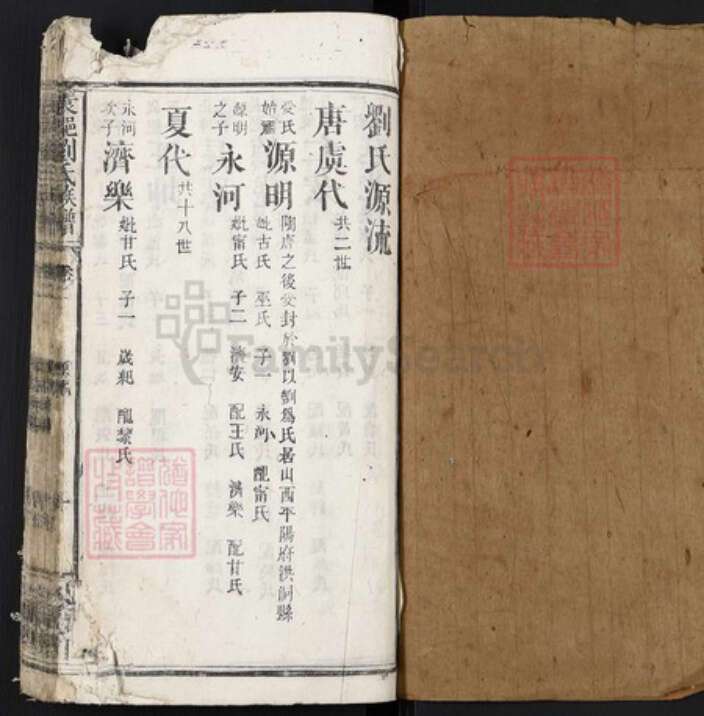 劉氏源流
唐虞代 共二世
受氏始祖 源明 陶唐之後受封於劉以劉爲氏居山西平陽府洪洞縣
妣古氏 巫氏 子一 永河 配甯氏
源明之子 永河 妣甯氏 子二 濟安 配王氏 濟樂 配甘氏
夏代 共十八世
永河次子 濟樂 妣甘氏 子一 歲祀 配黎氏
劉氏族譜
FamilySearch